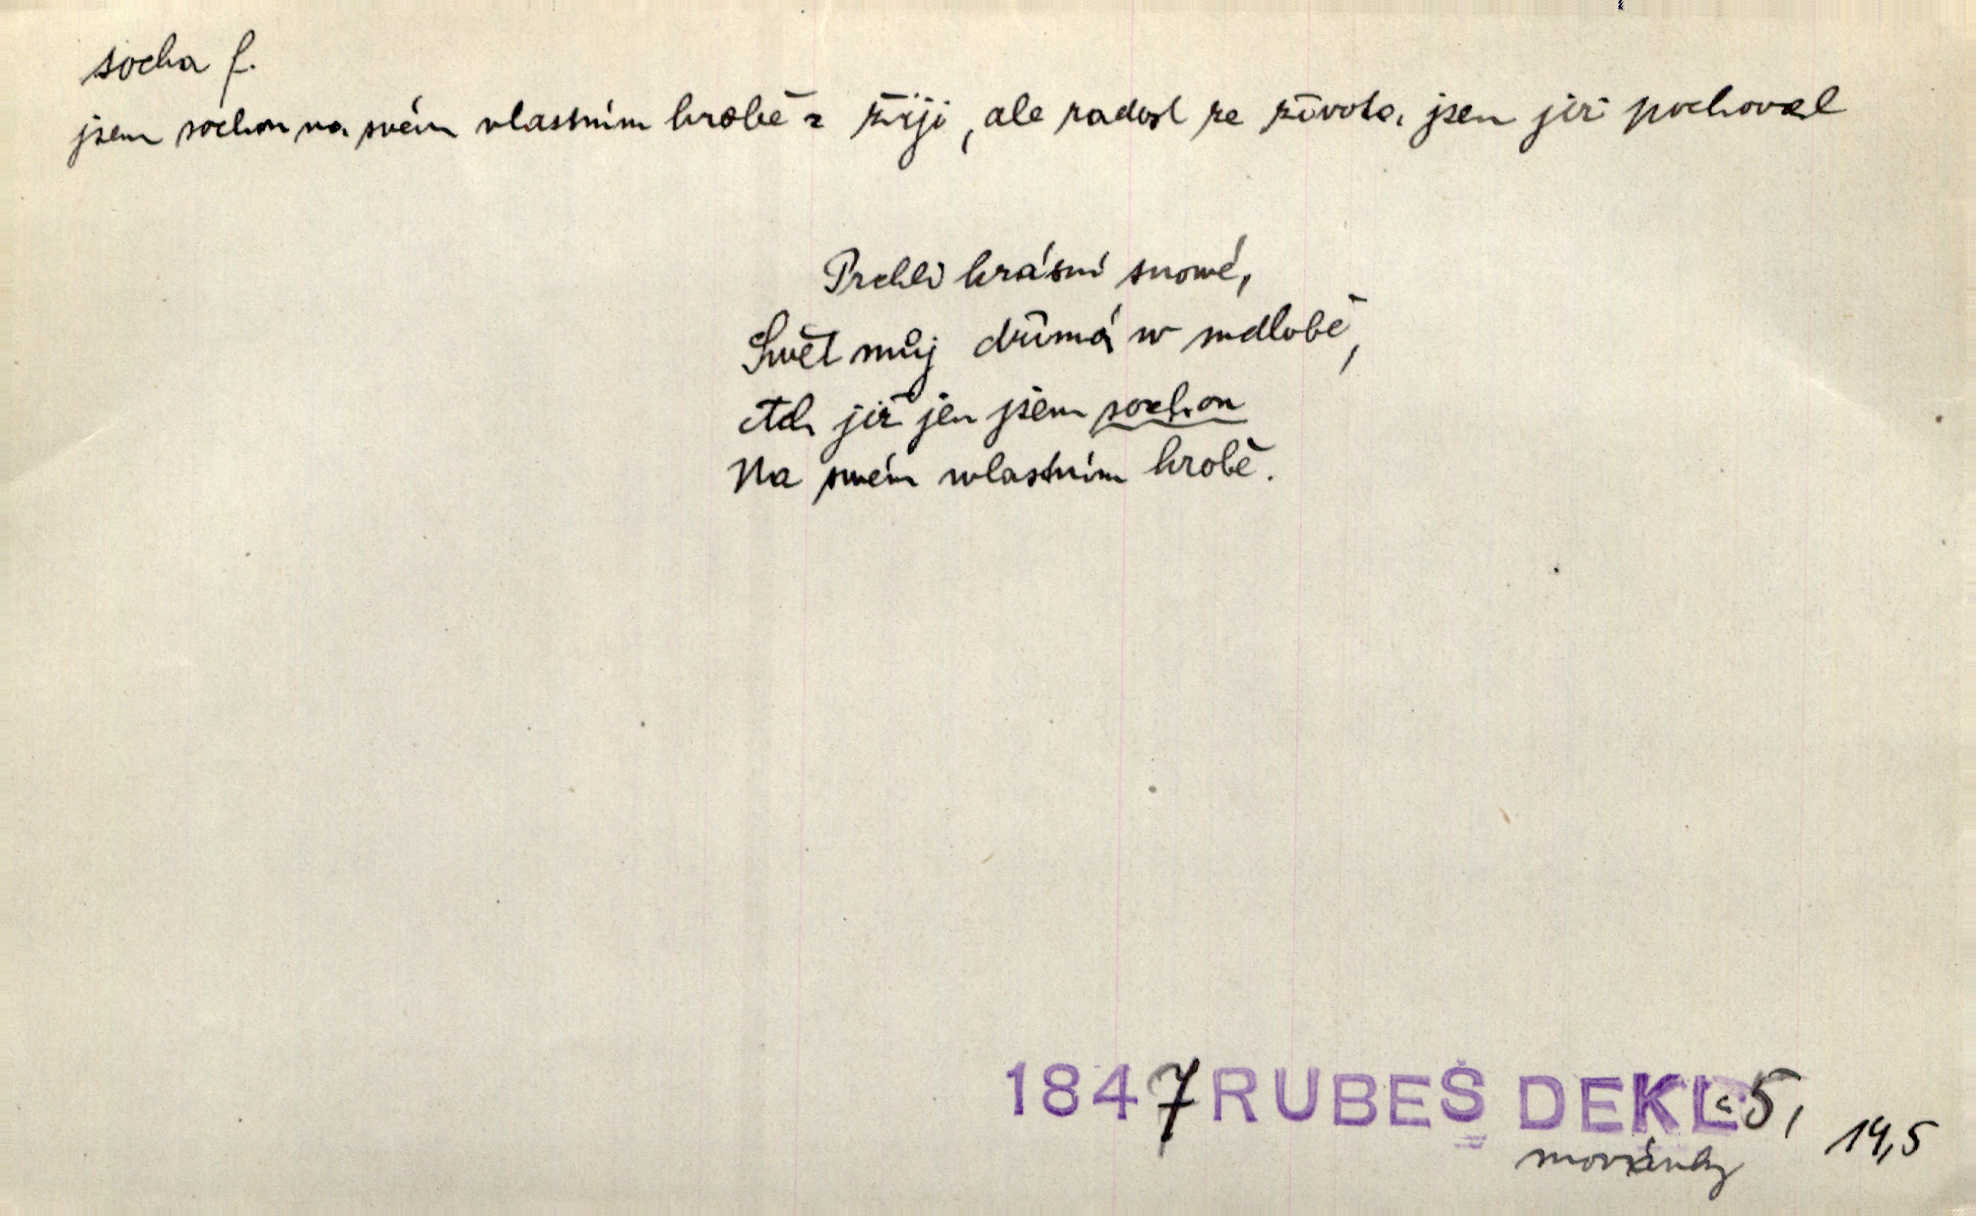 socha f.
jsem sochou na svém vlastním hrobě = žiji, ale radost ze života jsem již pochoval
Prchli krásní snowé,
Swět můj dřímá w mdlobě,
Ach již jen jsem sochou
Na swém wlastním hrobě.
1847 RUBEŠ DEKL 5,
14,5